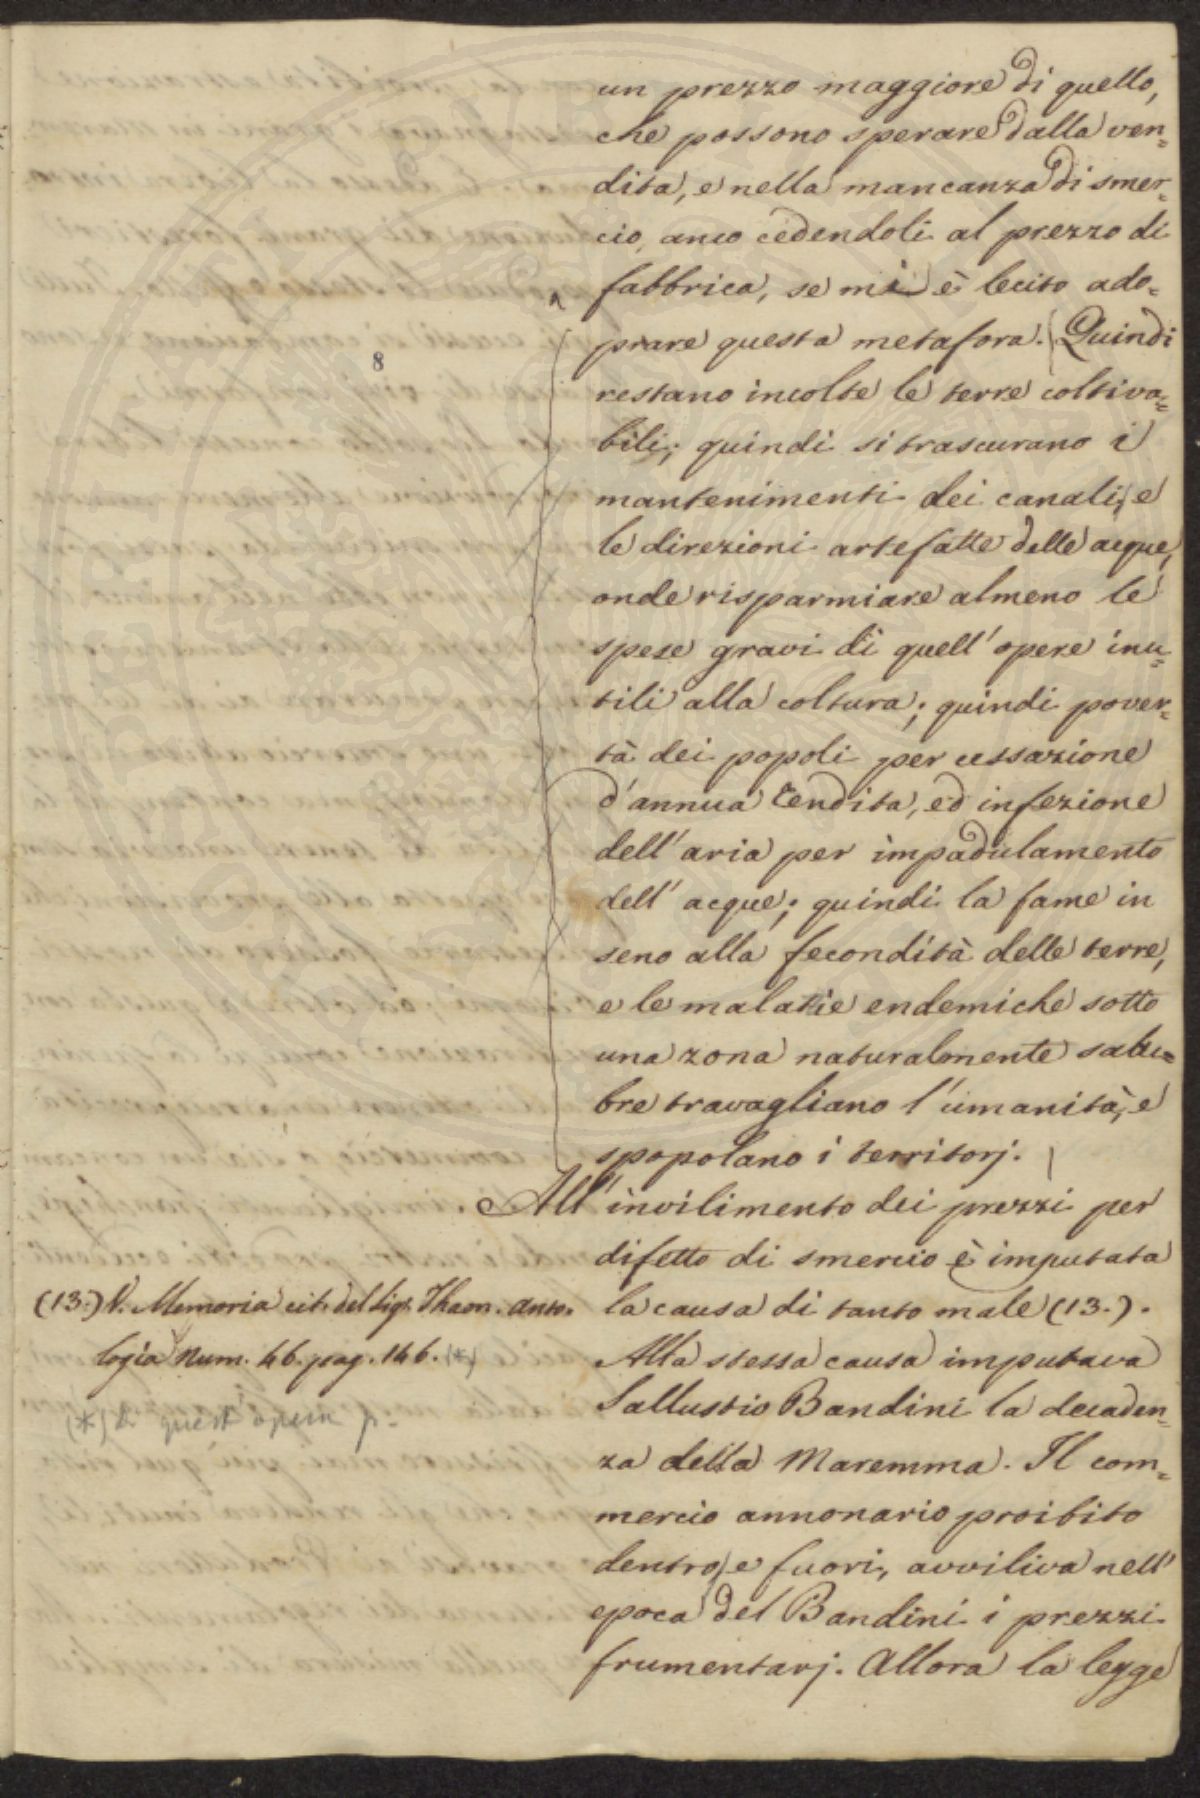 un prezzo maggiore di quello,
che possono sperare dalla ven=
dita, e nella mancanza di smer=
cio, anco cedendoli al prezzo di
fabbrica, se mi è lecito ado=
prare questa metafora. (Quindi
8
restano incolte le terre coltiva=
bili; quindi si trascurano i
mantenimenti dei canali, e
le direzioni artefatte delle acque,
onde risparmiare almeno le
spese gravi di quell' opere inu=
tili alla coltura; quindi pover=
tà dei popoli per cessazione
d'annua rendita, ed infezione
dell' aria per impadulamento
dell' acque; quindi la fame in
seno alla fecondità delle terre,
e le malatie endemiche sotto
una zona naturalmente salu=
bre travagliano l'umanità, e
spopolano i territorj. )
All' invilimento dei prezzi per
difetto di smercio è imputata
la causa di tanto male (13.).
(13.) V. Memoria cit. del Sigr. Thaon. Anto=
logia Num. 46. pag. 146. (*)
(*) Di quest' opera p.
Alla stessa causa imputava
Sallustio Bandini la decaden=
za della Maremma. Il com=
mercio annonario proibito
dentro, e fuori, avviliva nell'
epoca del Bandini i prezzi
frumentarj. Allora la legge